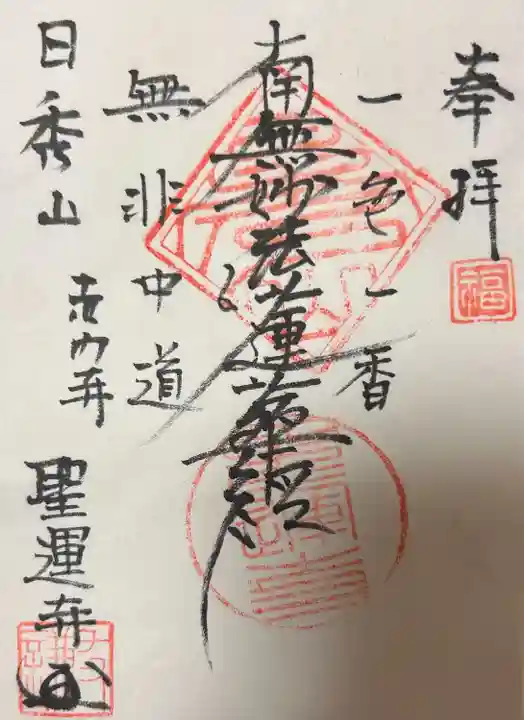 奉拝
福
一色一香
南無妙法蓮華経
無非中道
日秀山
聖運寺